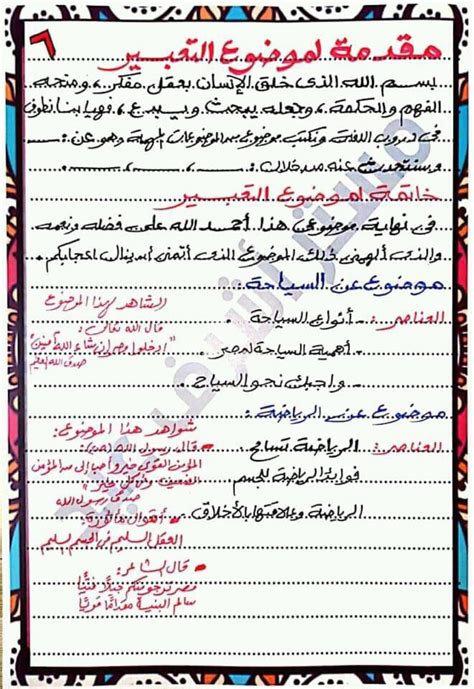 ٦
مقدمة لموضوع التعبير
بسم الله الذى خلق الإنسان بعقل مفكر، ومنحه
الفهم والحكمة، وجعله يبحث ويبدع، فهيا بنا نطوف
فى دروب اللغة ونكتب موضوع من الموضوعات المهمة وهو عن:
وسنتحدث عنه من خلال:
خاتمة لموضوع التعبير
فى نهاية موضوعى هذا أحمد الله على فضله ونعمه
والذى ألهمنى ذلك الموضوع الذى أتمنى أن ينال إعجابكم.
موضوع عن السياحة:
العناصر: - أنواع السياحة.
- أهمية السياحة لمصر.
- واجبك نحو السياح.
الشاهد لهذا الموضوع
قال الله تعالى:
"ادخلوا مصر إن شاء الله آمنين"
صدق الله العظيم
موضوع عن الرياضة:
العناصر: الرياضة تسامح
فوائد الرياضة للجسم
الرياضة وعلاقتها بالأخلاق.
شواهد هذا الموضوع:
قال رسول الله (ص):
المؤمن القوى خير وأحب إلى الله من المؤمن
الضعيف وفى كل خير"
صدق رسول الله
أقوال مأثورة:
العقل السليم فى الجسم السليم
قال الشاعر:
مصر ترجوتكم جيلًا فتيًّا
سالم البنية مقدامًا قويًّا